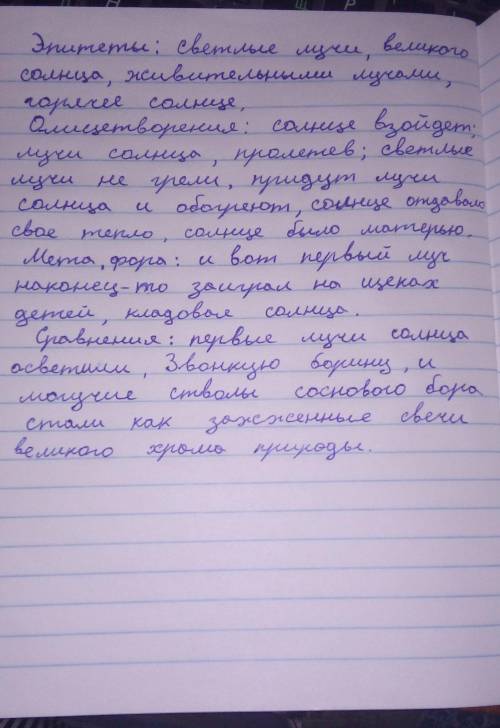 Эпитеты: светлые лучи, великого
солнца, живительными лучами,
горячее солнце.
Олицетворения: солнце взойдет;
лучи солнца, пролетев; светлые
лучи не грели, придут лучи
солнца и обогреют, солнце отдавало
свое тепло, солнце было матерью.
Мета,фора: и вот первый луч
наконец-то заиграл на щеках
детей, кладовая солнца.
Сравнения: первые лучи солнца
осветили, Звонкую борину, и
могучие стволы соснового бора
стали как зажженные свечи
великого храма природы.